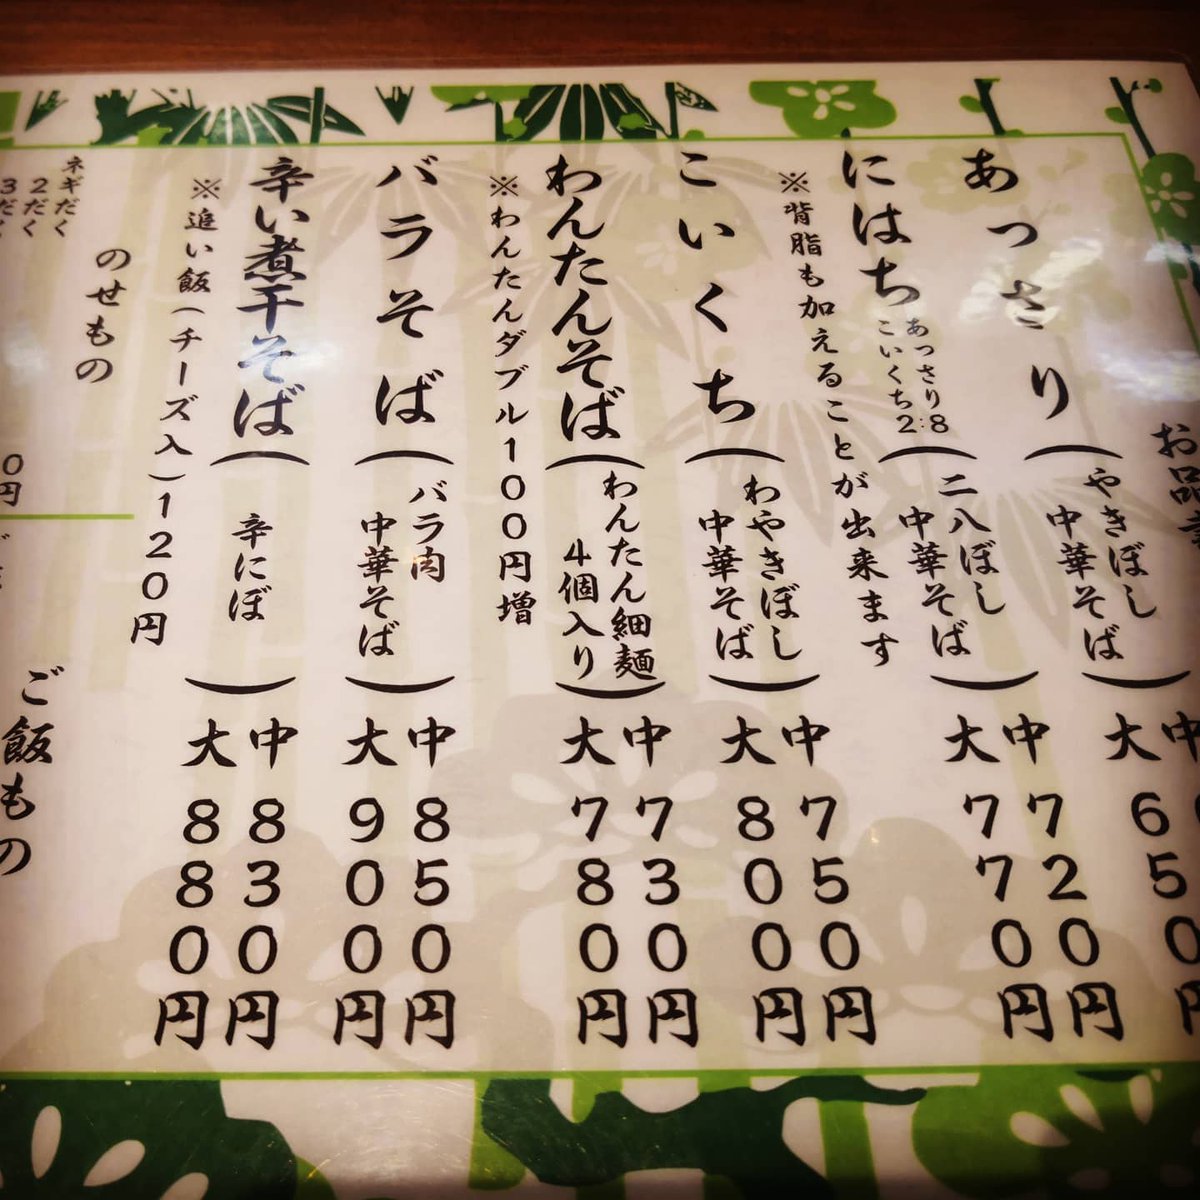 お品
あっさり
(やきぼし
中華そば)
中
大 65
にはち
あっさり8
こいくち2:
(二八ぼし
中華そば)
中 720円
大 770円
※背脂も加えることが出来ます
こいくち
(わやきぼし
中華そば)
中 750円
大 800円
わんたんそば
(わんたん細麺
4個入り)
中 730円
大 780円
※わんたんダブル100円増
バラそば
(バラ肉
中華そば)
中 850円
大 900円
辛い煮干そば
(辛にぼ)
中 830円
大 880円
※追い飯(チーズ入)120円
のせもの
ネギだく
2だく
3だく
0円
ご飯もの